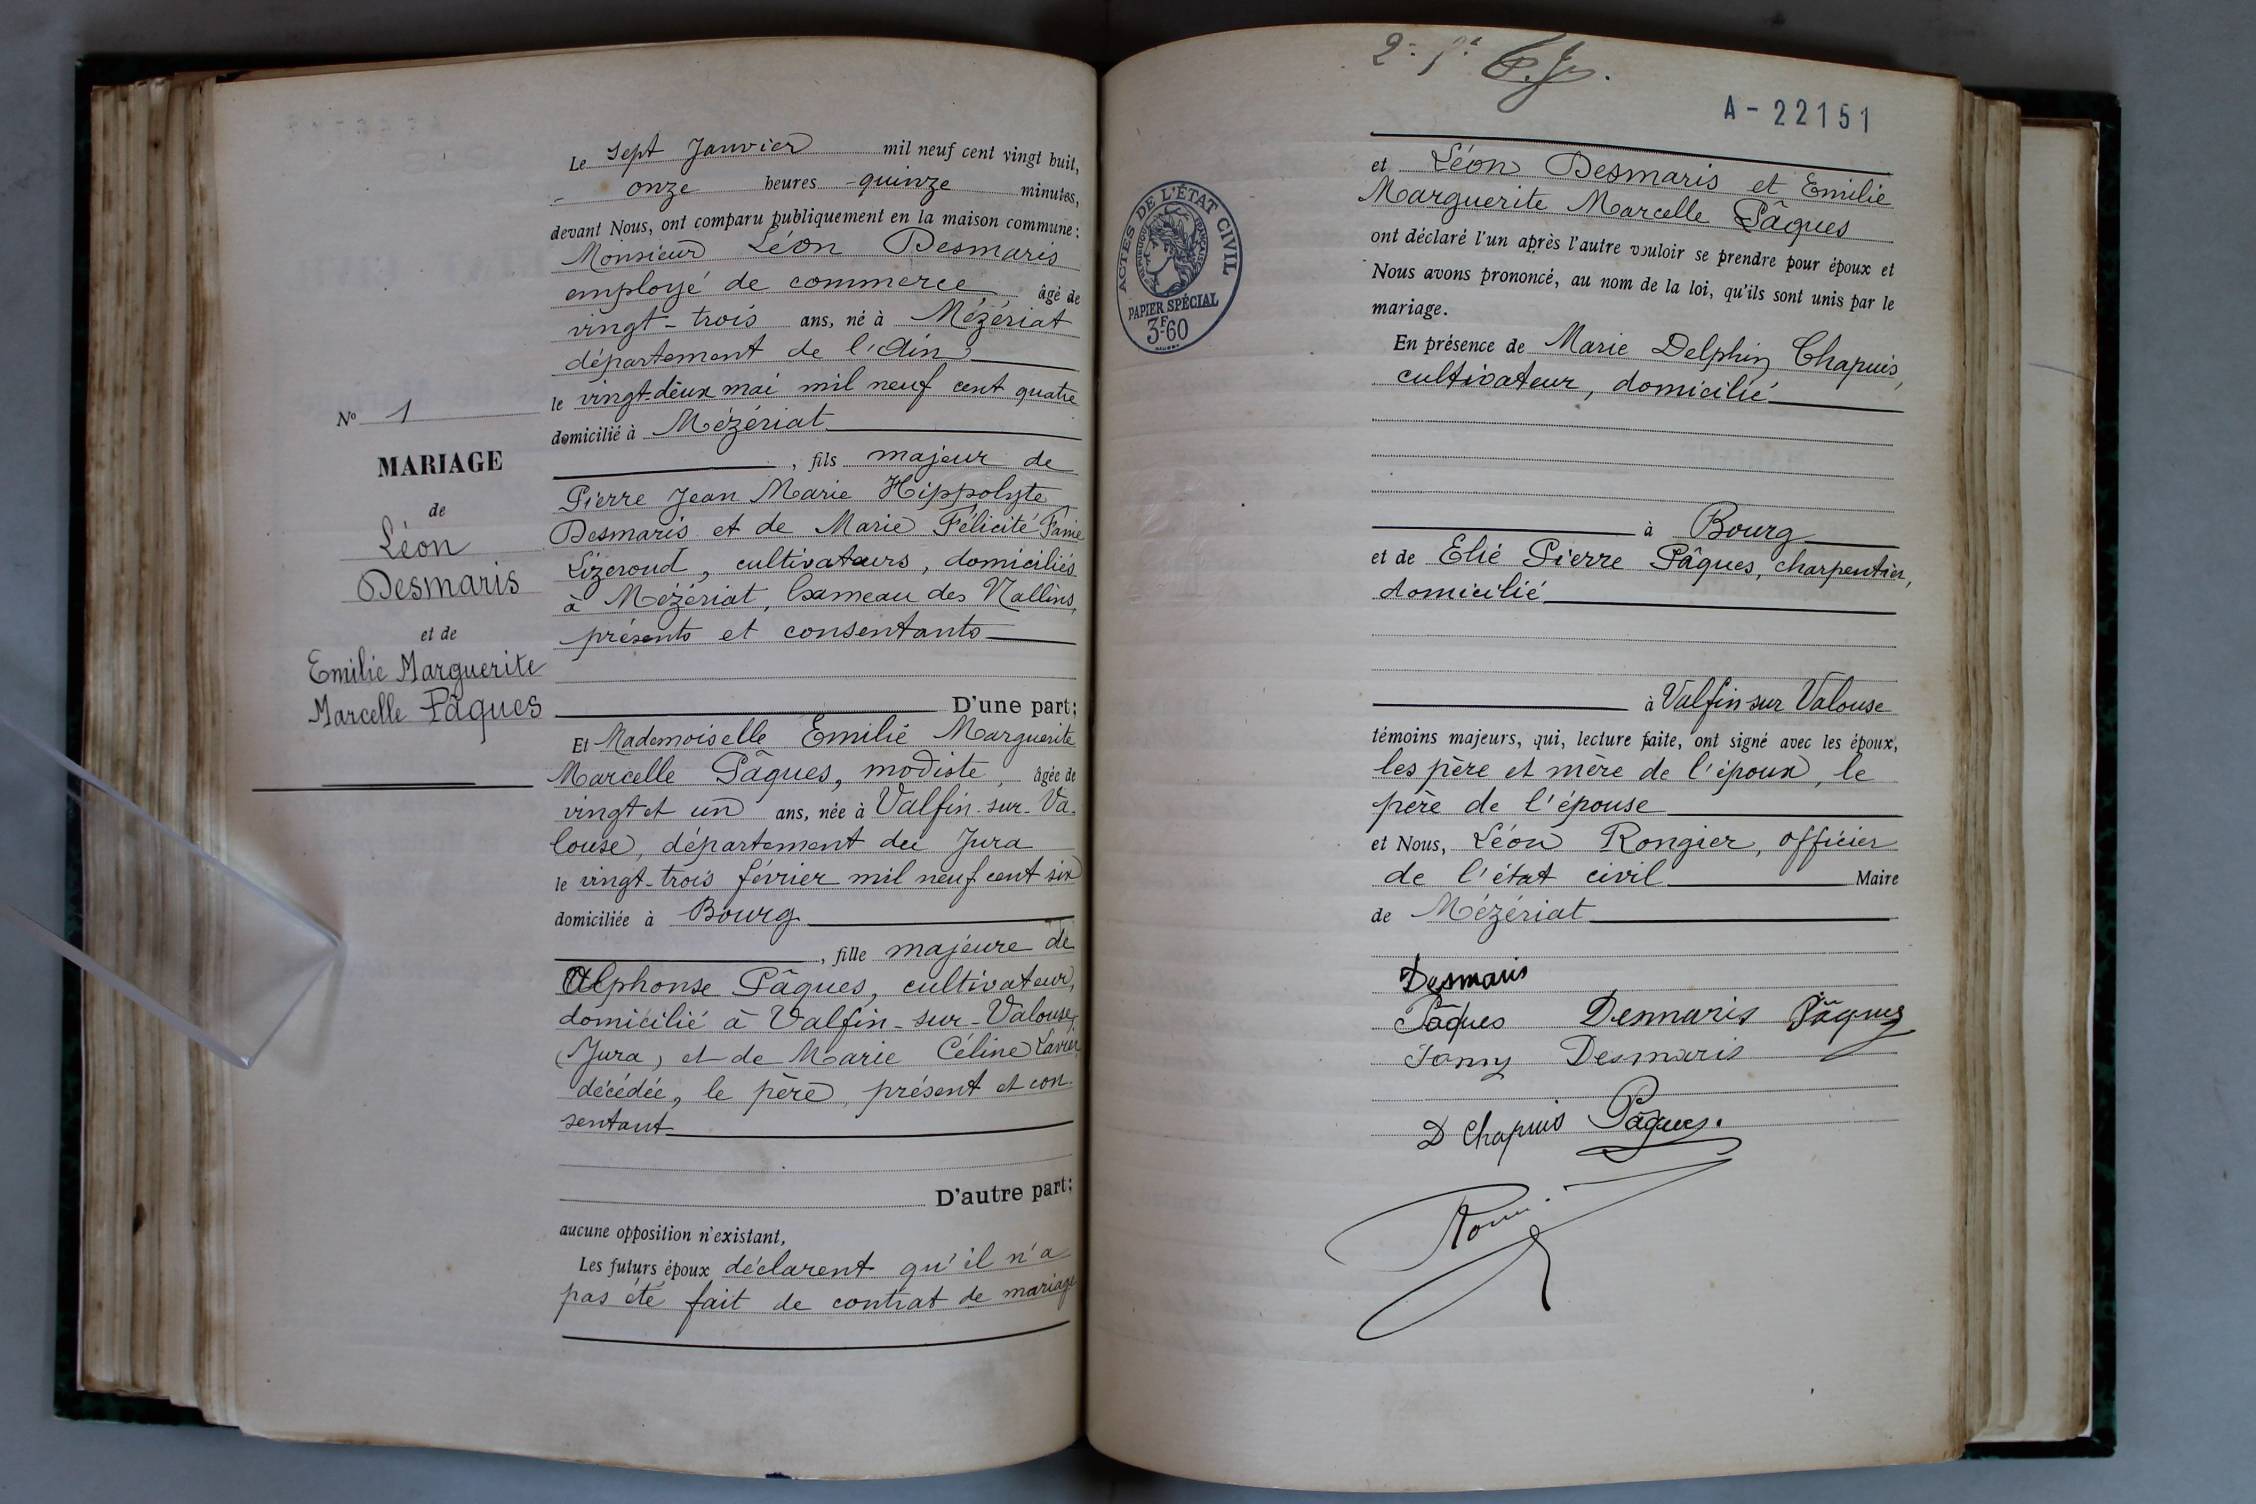 N° 1
MARIAGE
de
Léon
Desmaris
et de
Emilie Marguerite
Marcelle Pâques
Le sept Janvier mil neuf cent vingt huit,
onze heures quinze minutes,
devant Nous, ont comparu publiquement en la maison commune :
Monsieur Léon Desmaris
employé de commerce âgé de
vingt-trois ans, né à Mézériat
département de l'Ain
le vingt-deux mai mil neuf cent quatre
domicilié à Mézériat
, fils majeur de
Pierre Jean Marie Hippolyte
Desmaris et de Marie Félicité Fanie
Lizeroud, cultivateurs, domiciliés
à Mézériat, hameau des Nallins,
présents et consentants
D'une part ;
Et Mademoiselle Emilie Marguerite
Marcelle Pâques, modiste, âgée de
vingt et un ans, née à Valfin-sur-Va-
louse, département du Jura
le vingt-trois février mil neuf cent six
domiciliée à Bourg
, fille majeure de
Alphonse Pâques, cultivateur,
domicilié à Valfin-sur-Valouse,
(Jura) et de Marie Céline Lavier
décédée, le père présent et con-
sentant
D'autre part ;
aucune opposition n'existant,
Les futurs époux déclarent qu'il n'a
pas été fait de contrat de mariage
A-22151
ACTES DE L'ÉTAT CIVIL
RÉPUBLIQUE FRANÇAISE
PAPIER SPÉCIAL
3F60
et Léon Desmaris et Emilie
Marguerite Marcelle Pâques
ont déclaré l'un après l'autre vouloir se prendre pour époux et
Nous avons prononcé, au nom de la loi, qu'ils sont unis par le
mariage.
En présence de Marie Delphin Chapuis,
cultivateur, domicilié
à Bourg
et de Elie Pierre Pâques, charpentier,
domicilié
à Valfin-sur Valouse
témoins majeurs, qui, lecture faite, ont signé avec les époux,
les père et mère de l'époux, le
père de l'épouse
et Nous, Léon Rongier, officier
de l'état civil Maire
de Mézériat
Desmaris
Pâques Desmaris Pâques
Fany Desmaris
D Chapuis Pâques.